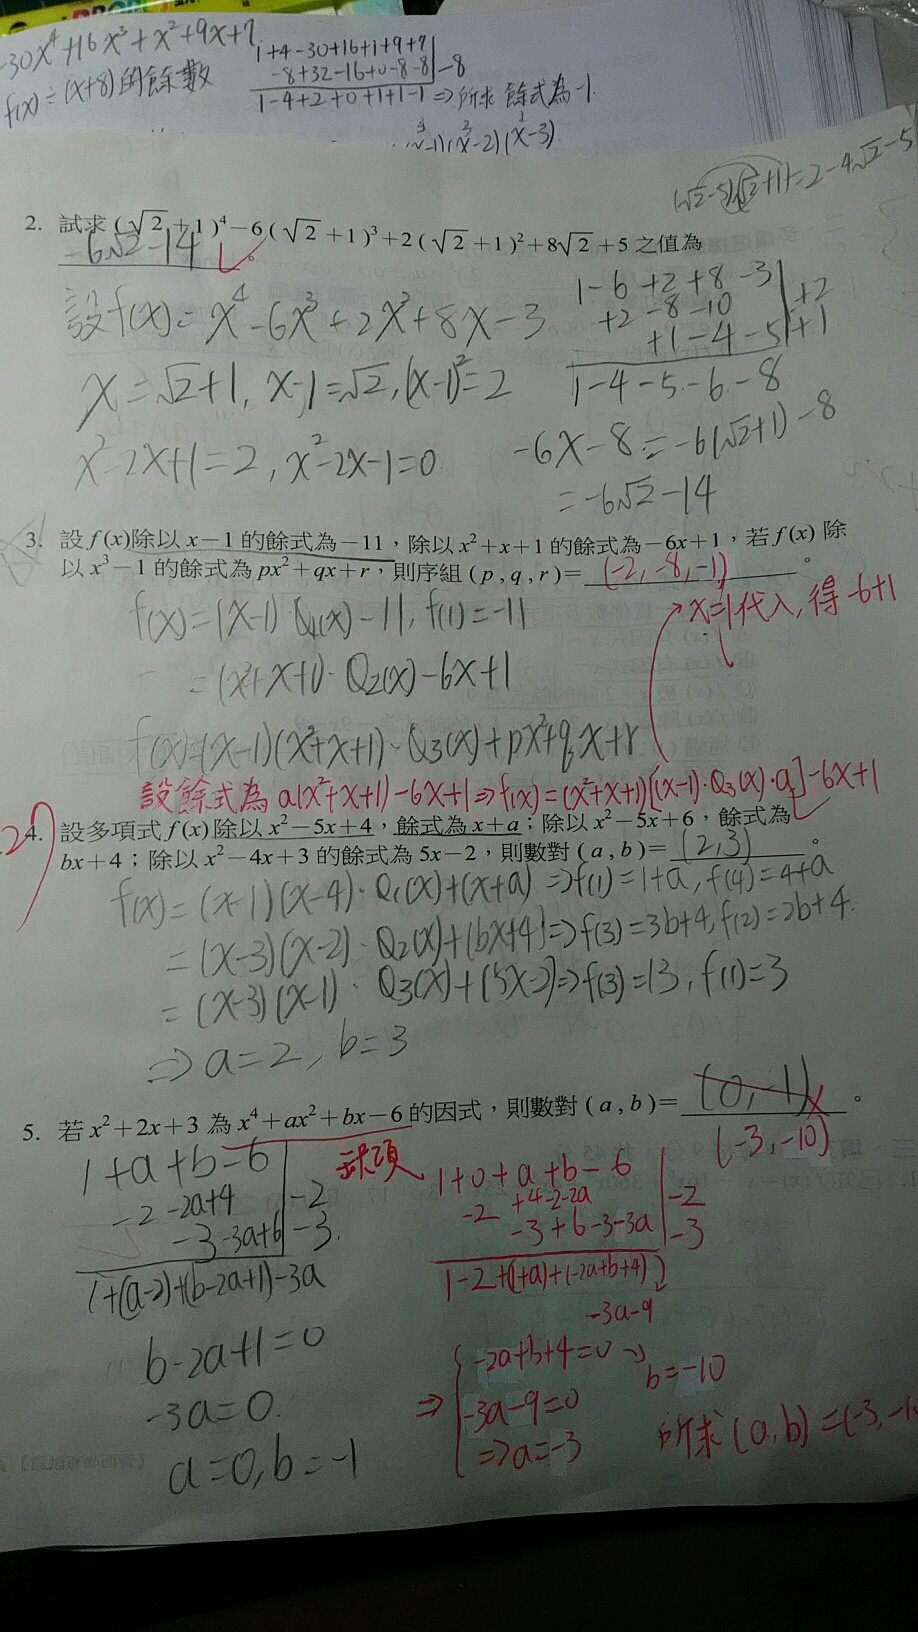 -30x⁴+16x³+x²+9x+7
f(x)÷(x+8)的餘數
1+4-30+16+1+9+7
-8+32-16+0-8-8|-8
1-4+2+0+1+1-1⇒所求餘式為-1.
(x-2)(x-3)
(√2-5)(√2+1)=2-4√2-5
2. 試求(√2+1)⁴-6(√2+1)³+2(√2+1)²+8√2+5之值為
-6√2-14。
設f(x)=x⁴-6x³+2x²+8x-3
1-6+2+8-3|+2
+2-8-10
+1-4-5|+1
1-4-5-6-8
x=√2+1, x-1=√2, (x-1)²=2
x²-2x+1=2, x²-2x-1=0
-6x-8=-6(√2+1)-8
=-6√2-14
3. 設f(x)除以x-1的餘式為-11,除以x²+x+1的餘式為-6x+1,若f(x)除
以x³-1的餘式為px²+qx+r,則序組(p,q,r)=(-2,-8,-1)。
x=1代入,得-6+1
f(x)=(x-1)·Q₁(x)-11, f(1)=-11
=(x²+x+1)·Q₂(x)-6x+1
f(x)=(x-1)(x²+x+1)·Q₃(x)+px²+qx+r
設餘式為a(x²+x+1)-6x+1⇒f(x)=(x²+x+1)[(x-1)·Q₃(x)·a]-6x+1
4. 設多項式f(x)除以x²-5x+4,餘式為x+a;除以x²-5x+6,餘式為
bx+4;除以x²-4x+3的餘式為5x-2,則數對(a,b)=(2,3)。
f(x)=(x-1)(x-4)·Q₁(x)+(x+a)⇒f(1)=1+a, f(4)=4+a
=(x-3)(x-2)·Q₂(x)+(bx+4)⇒f(3)=3b+4, f(2)=2b+4.
=(x-3)(x-1)·Q₃(x)+(5x-2)⇒f(3)=13, f(1)=3
⇒a=2, b=3
5. 若x²+2x+3為x⁴+ax²+bx-6的因式,則數對(a,b)=(0,-1)。
(-3,-10)
缺項
1+a+b-6
-2-2a+4|-2
-3-3a+6|-3.
1+(a-2)+(b-2a+1)-3a
b-2a+1=0
-3a=0.
a=0, b=-1
1+0+a+b-6
-2+4-2-2a|-2
-3+6-3-3a|-3
1-2+(1+a)+(-2a+b+4)
-3a-9
⇒{-2a+b+4=0→b=-10
-3a-9=0
⇒a=-3
所求(a,b)=(-3,-1